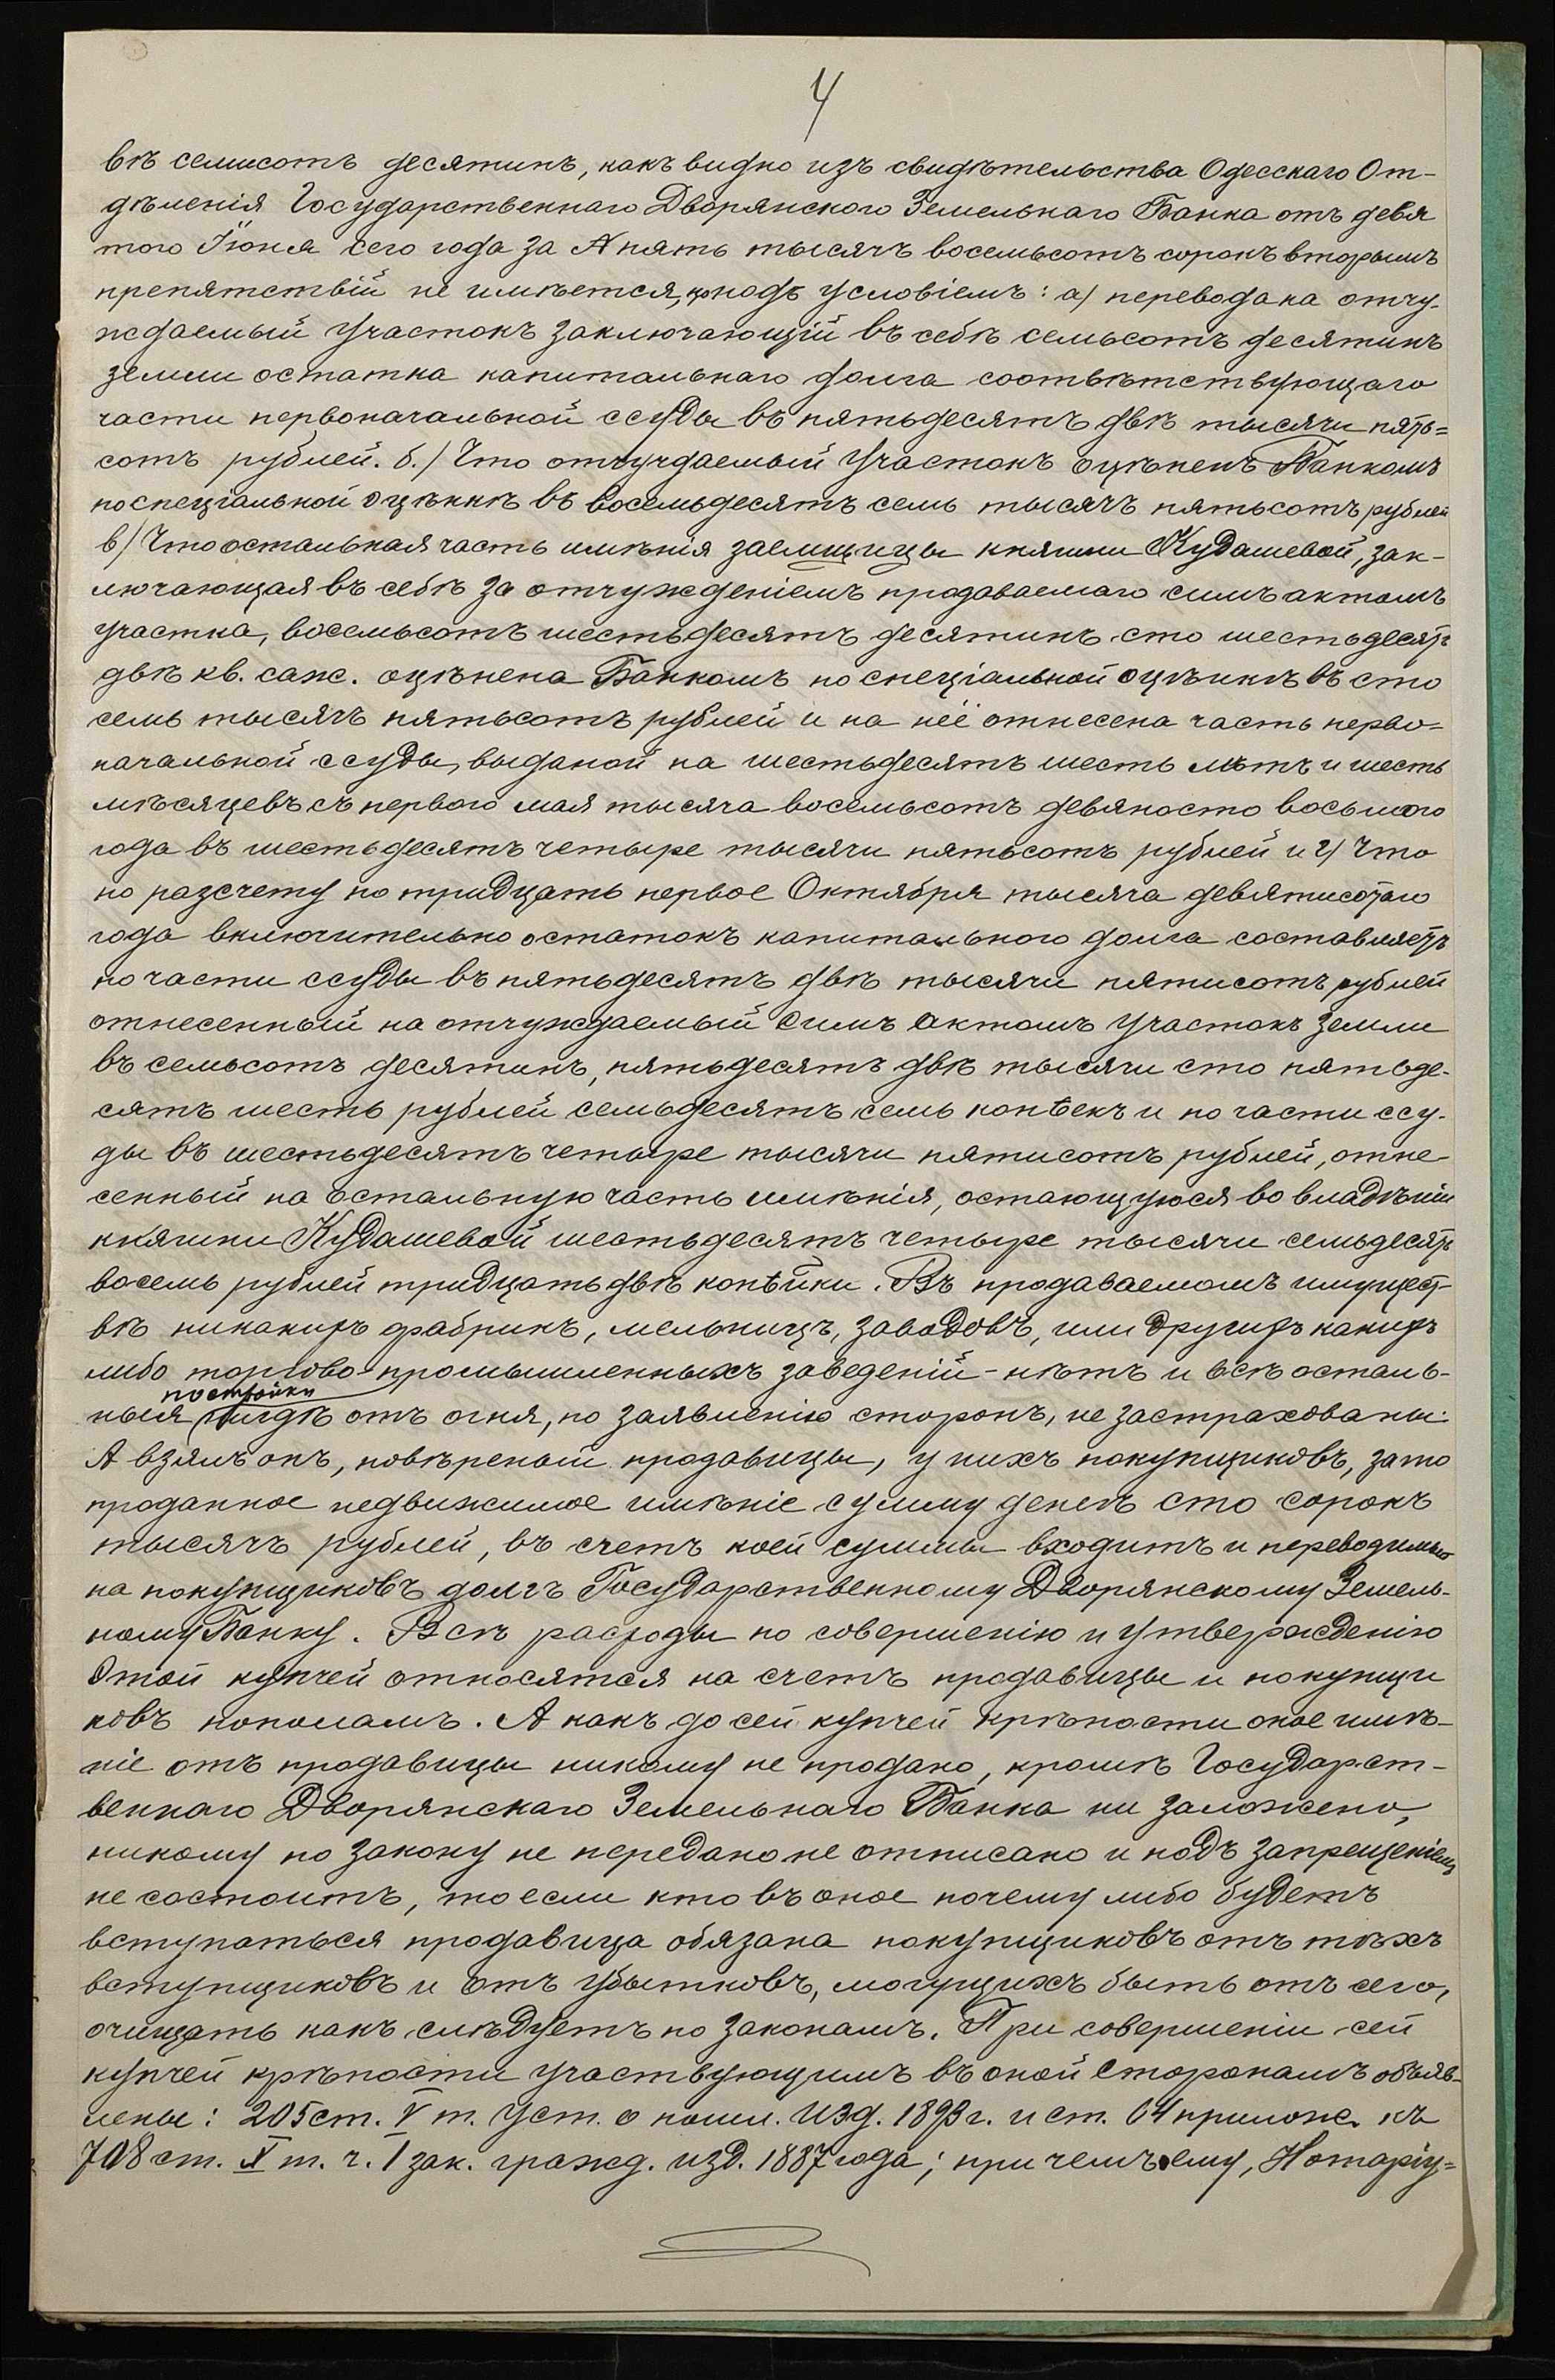 4
въ семисотъ десятинъ, какъ видно изъ свидѣтельства Одесскаго От-
дѣленія Государственнаго Дворянскаго Земельнаго Банка отъ девя
того Іюня сего года за № пять тысячъ восемьсотъ сорокъ вторымъ
препятствій не имѣется, подъ условіемъ: а) перевода на отчу-
ждаемый участокъ заключающій въ себѣ семьсотъ десятинъ
земли остатка капитальнаго долга соотвѣтствующаго
части первоначальной ссуды въ пятьдесятъ двѣ тысячи пять=
сотъ рублей. б.) Что отчуждаемый участокъ оцѣненъ Банкомъ
по спеціальной оцѣнкѣ въ восемьдесятъ семь тысячъ пятьсотъ рублей
в) Что остальная часть имѣнія заемщицы княжны Кудашевой, зак-
лючающая въ себѣ за отчужденіемъ продаваемаго симъ актомъ
участка, восемьсотъ шестьдесятъ десятинъ сто шестьдесятъ
двѣ кв. саж. оцѣнена Банкомъ по спеціальной оцѣнкѣ въ сто
семь тысячъ пятьсотъ рублей и на неё отнесена часть перво=
начальной ссуды, выданой на шестьдесятъ шесть лѣтъ и шесть
мѣсяцевъ съ перваго мая тысяча восемьсотъ девяносто восьмого
года въ шестьдесятъ четыре тысячи пятьсотъ рублей и г) Что
по разсчету по тридцать первое Октября тысяча девятисотаго
года включительно остатокъ капитального долга составляетъ
по части ссуды въ пятьдесятъ двѣ тысячи пятисотъ рублей
отнесенный на отчуждаемый симъ актомъ участокъ земли
въ семьсотъ десятинъ, пятьдесятъ двѣ тысячи сто пятьде-
сятъ шесть рублей семьдесятъ семь копѣекъ и по части ссу-
ды въ шестьдесятъ четыре тысячи пятисотъ рублей, отне-
сенный на остальную часть имѣнія, остающуюся во владѣніи
княжны Кудашевой шестьдесятъ четыре тысячи семьдесятъ
восемь рублей тридцать двѣ копѣйки. Въ продаваемомъ имущест-
вѣ никакихъ фабрикъ, мельницъ, заводовъ, или другихъ какихъ
либо торгово-промышленныхъ заведеній - нѣтъ и всѣ осталь-
постройки
ныя нигдѣ отъ огня, по заявленію сторонъ, не застрахованы.
А взялъ онъ, повѣреный продавицы, у нихъ покупщиковъ, за то
проданное недвижимое имѣніе сумму денегъ сто сорокъ
тысячъ рублей, въ счетъ коей суммы входитъ и переводимый
на покупщиковъ долгъ Государственному Дворянскому Земель-
ному Банку. Всѣ расходы по совершенію и утвержденію
этой купчей относятся на счетъ продавицы и покупщи
ковъ пополамъ. А какъ до сей купчей крѣпости оное имѣ-
ніе отъ продавицы никому не продано, кромѣ Государст-
веннаго Дворянскаго Земельнаго Банка ни заложено,
никому по закону не передано не отписано и подъ запрещеніемъ
не состоитъ, то если кто въ оное почему либо будетъ
вступаться продавица обязана покупщиковъ отъ тѣхъ
вступщиковъ и отъ убытковъ, могущихъ быть отъ сего,
очищать какъ слѣдуетъ по законамъ. При совершеніи сей
купчей крѣпости участвующимъ въ оной сторонамъ объяв-
лены: 205 ст. V т. Уст. о пошл. изд. 1893 г. и ст. 64 прилож. къ
708 ст. X т. ч. 1 зак. гражд. изд. 1887 года; при чемъ ему, Нотаріу=